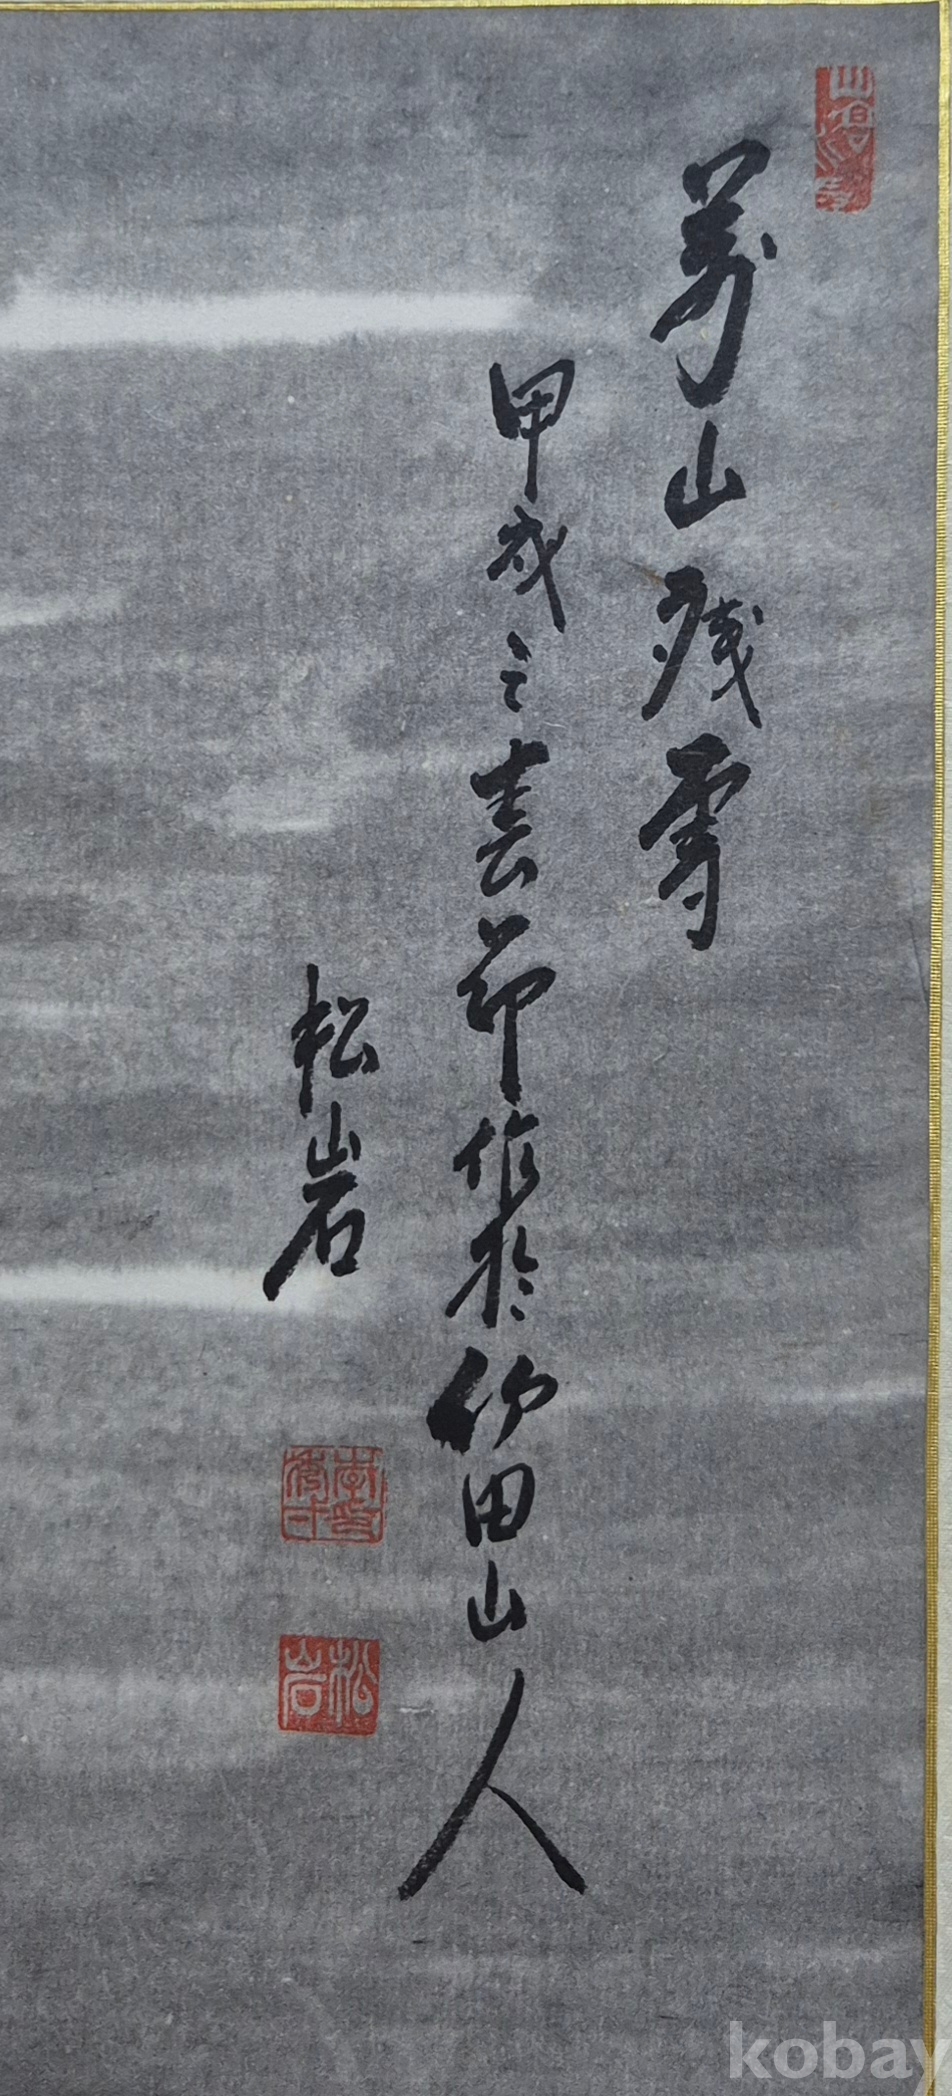 萬山殘雪
甲戌之春節作於竹田山人
松岩
松岩
kobay